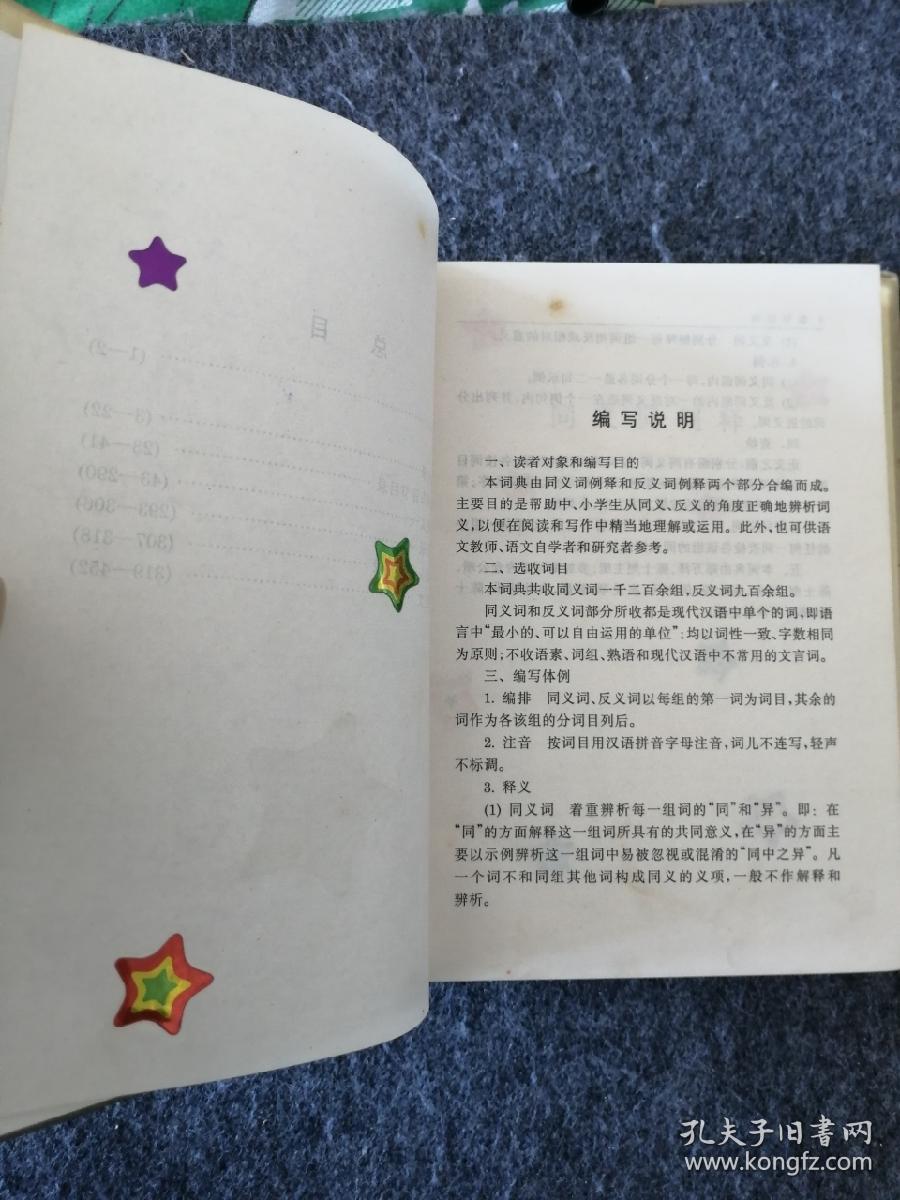 总目
(1—2)
(3—22)
(23—41)
(43—290)
(293—306)
(307—318)
(319—452)
编写说明
一、读者对象和编写目的
本词典由同义词例释和反义词例释两个部分合编而成。
主要目的是帮助中、小学生从同义、反义的角度正确地辨析词
义,以便在阅读和写作中精当地理解或运用。此外,也可供语
文教师、语文自学者和研究者参考。
二、选收词目
本词典共收同义词一千二百余组,反义词九百余组。
同义词和反义词部分所收都是现代汉语中单个的词,即语
言中“最小的、可以自由运用的单位”;均以词性一致、字数相同
为原则;不收语素、词组、熟语和现代汉语中不常用的文言词。
三、编写体例
1. 编排 同义词、反义词以每组的第一词为词目,其余的
词作为各该组的分词目列后。
2. 注音 按词目用汉语拼音字母注音,词儿不连写,轻声
不标调。
3. 释义
(1) 同义词 着重辨析每一组词的“同”和“异”。即: 在
“同”的方面解释这一组词所具有的共同意义,在“异”的方面主
要以示例辨析这一组词中易被忽视或混淆的“同中之异”。凡
一个词不和同组其他词构成同义的义项,一般不作解释和
辨析。
孔夫子旧书网
www.kongfz.com